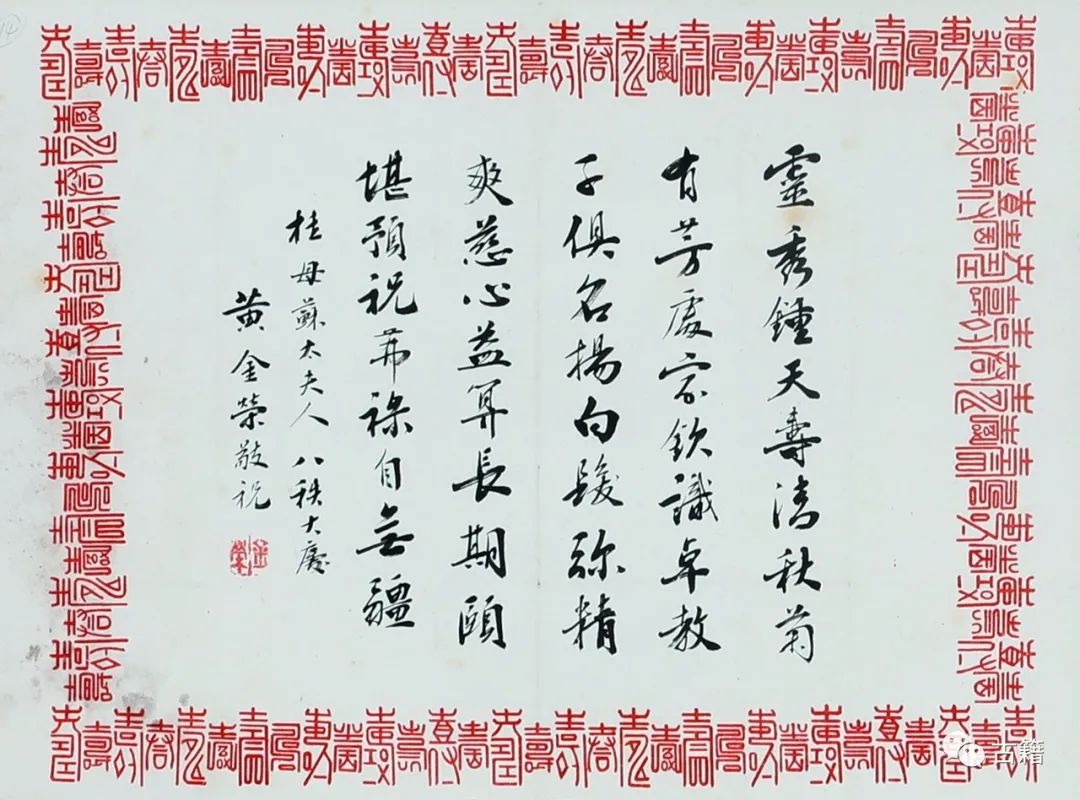 靈秀鍾天壽清秋菊
有芳處家欽識卓教
子俱名揚白髮彌精
爽慈心益算長期頤
堪預祝茀祿自無疆
桂母蘇太夫人八秩大慶
黃金榮敬祝
金榮
古籍